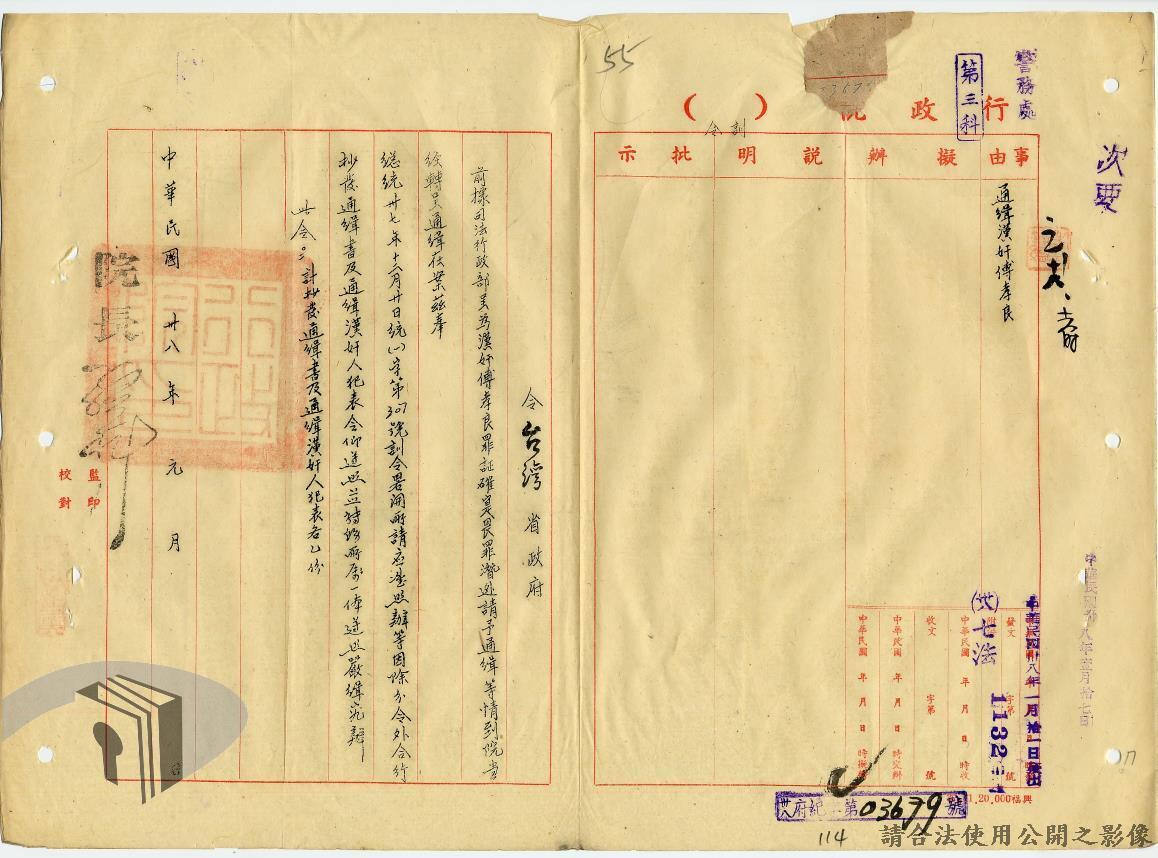 55
警務處
第三科
行政院
( )
訓令
次要
事由
擬辦
說明
批示
通緝漢奸傅孝良
中華民國卅八年一月拾一日發出
發文 字第 號
附件
(卅八)七法
1132
中華民國 年 月 日 時收
收文 字第 號
中華民國 年 月 日 時交辦
中華民國 年 月 日 時擬辦
中華民國卅八年壹月拾七日
1,20,000福興
卅八府紀 第03679號
114
17
令台灣省政府
前據司法行政部呈為漢奸傅孝良罪証確鑿畏罪潛逃請予通緝等情到院當
經轉呈通緝在案茲奉
總統卅七年十二月卅日統(一)字第307號訓令署開所請應准照辦等因除分令外合行
抄發通緝書及通緝漢奸人犯表令仰遵照並轉飭所屬一体遵照嚴緝究辦
此令。
計抄發通緝書及通緝漢奸人犯表各乙份
院長
中華民國卅八年元月 日
監印
校對
請合法使用公開之影像